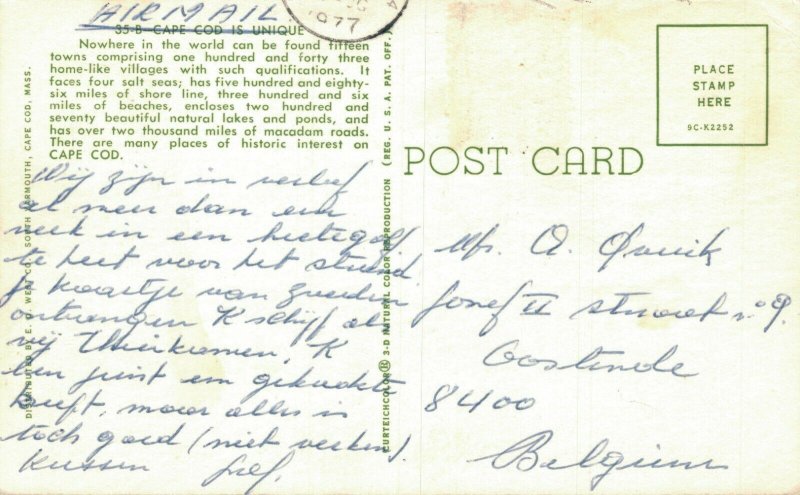 AIRMAIL
1977
35-B-CAPE COD IS UNIQUE
Nowhere in the world can be found fifteen
towns comprising one hundred and forty three
home-like villages with such qualifications. It
faces four salt seas; has five hundred and eighty-
six miles of shore line, three hundred and six
miles of beaches, encloses two hundred and
seventy beautiful natural lakes and ponds, and
has over two thousand miles of macadam roads.
There are many places of historic interest on
CAPE COD.
Wij zijn in verlof
al meer dan een
week in een hittegolf,
te heet voor het strand
Je kaartje van Zweden
ontvangen K schijf als
wij thuiskomen. K
ben juist een gekookte
kreeft, maar alles is
toch goed (niet werken).
Kussen
DISTRIBUTED BY E. D. WEST CO., SOUTH YARMOUTH, CAPE COD, MASS.
CURTEICHCOLOR® 3-D NATURAL COLOR REPRODUCTION (REG. U. S. A. PAT. OFF.)
POST CARD
PLACE
STAMP
HERE
9C-K2252
Josef II straat n° 9.
Oostende
8400
Belgium